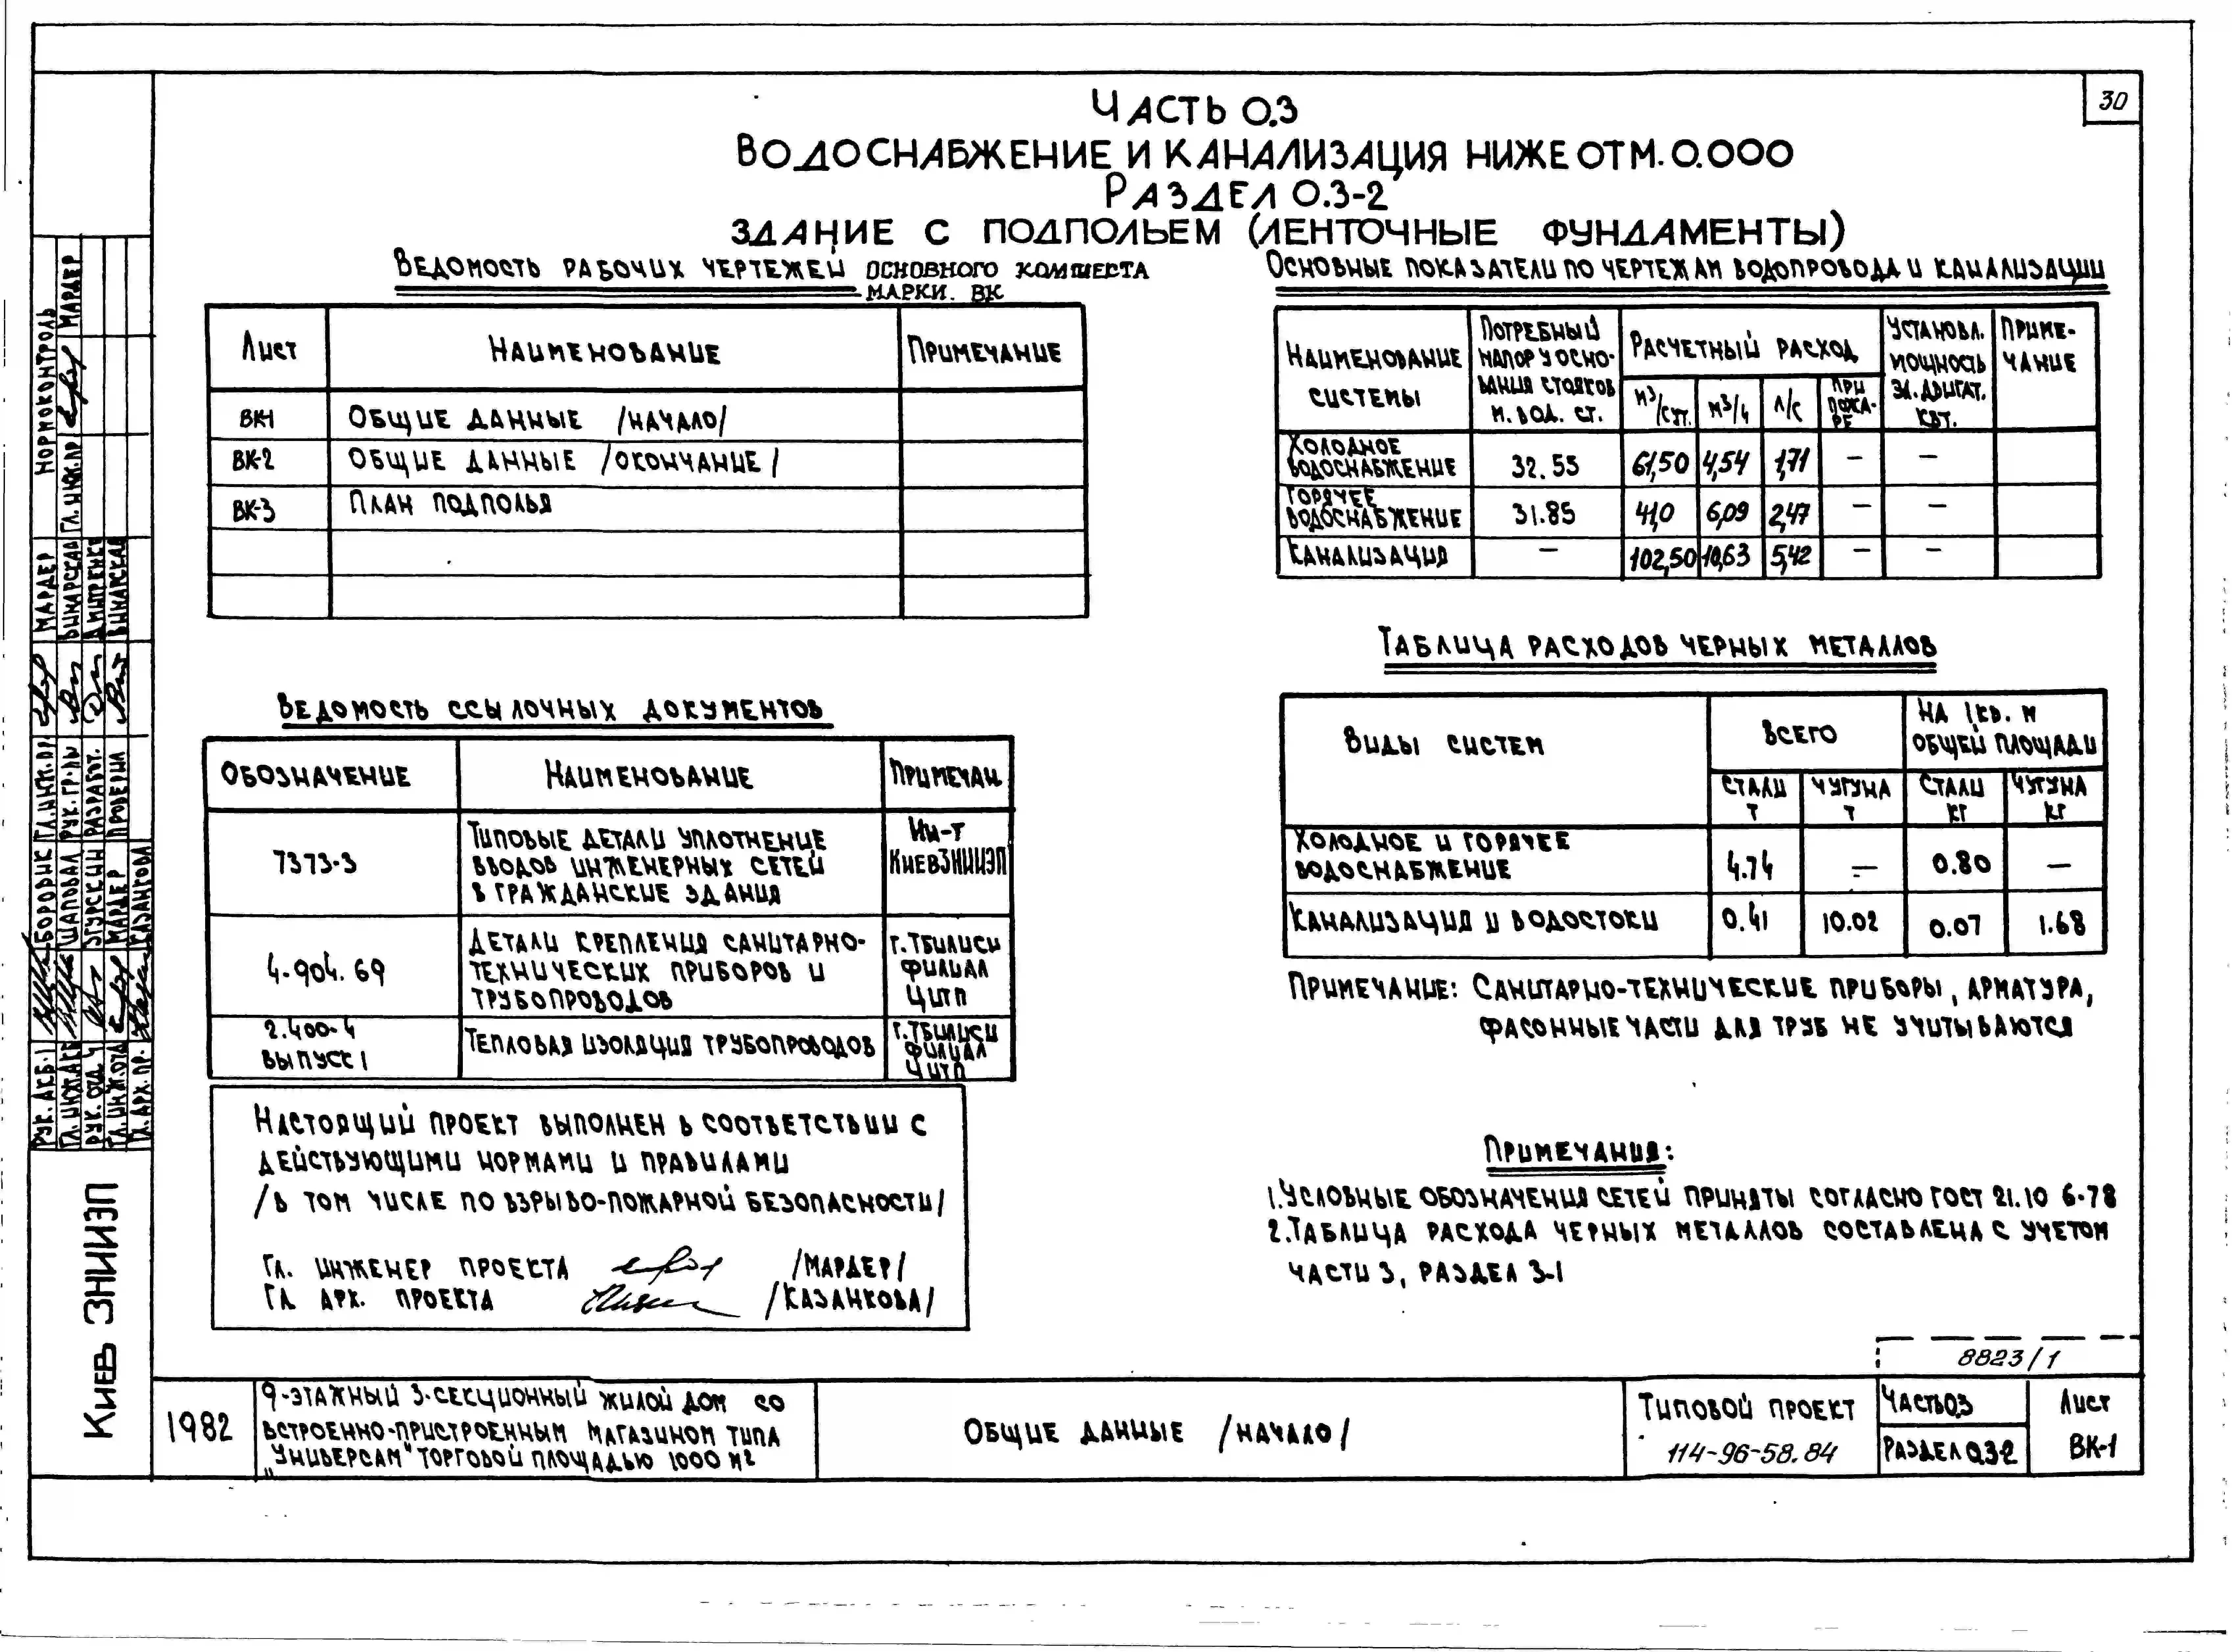 30
ЧАСТЬ 0.3
ВОДОСНАБЖЕНИЕ И КАНАЛИЗАЦИЯ НИЖЕ ОТМ. 0.000
РАЗДЕЛ 0.3-2
ЗДАНИЕ С ПОДПОЛЬЕМ (ЛЕНТОЧНЫЕ ФУНДАМЕНТЫ)
ВЕДОМОСТЬ РАБОЧИХ ЧЕРТЕЖЕЙ ОСНОВНОГО КОМПЛЕКТА
МАРКИ. ВК
ЛИСТ НАИМЕНОВАНИЕ ПРИМЕЧАНИЕ
ВК-1 ОБЩИЕ ДАННЫЕ /НАЧАЛО/
ВК-2 ОБЩИЕ ДАННЫЕ /ОКОНЧАНИЕ/
ВК-3 ПЛАН ПОДПОЛЬЯ
ВЕДОМОСТЬ ССЫЛОЧНЫХ ДОКУМЕНТОВ
ОБОЗНАЧЕНИЕ НАИМЕНОВАНИЕ ПРИМЕЧАН.
7373-3
ТИПОВЫЕ ДЕТАЛИ УПЛОТНЕНИЕ
ВВОДОВ ИНЖЕНЕРНЫХ СЕТЕЙ
В ГРАЖДАНСКИЕ ЗДАНИЯ
ИН-Т
КИЕВЗНИИЭП
4-904.69
ДЕТАЛИ КРЕПЛЕНИЯ САНИТАРНО-
ТЕХНИЧЕСКИХ ПРИБОРОВ И
ТРУБОПРОВОДОВ
Г. ТБИЛИСИ
ФИЛИАЛ
ЦИТП
2.400-4
ВЫПУСК 1
ТЕПЛОВАЯ ИЗОЛЯЦИЯ ТРУБОПРОВОДОВ
Г. ТБИЛИСИ
ФИЛИАЛ
ЦИТП
НАСТОЯЩИЙ ПРОЕКТ ВЫПОЛНЕН В СООТВЕТСТВИИ С
ДЕЙСТВУЮЩИМИ НОРМАМИ И ПРАВИЛАМИ
/В ТОМ ЧИСЛЕ ПО ВЗРЫВО-ПОЖАРНОЙ БЕЗОПАСНОСТИ/
ГЛ. ИНЖЕНЕР ПРОЕКТА /МАРДЕР/
ГЛ. АРХ. ПРОЕКТА /КАЗАНКОВА/
ОСНОВНЫЕ ПОКАЗАТЕЛИ ПО ЧЕРТЕЖАМ ВОДОПРОВОДА И КАНАЛИЗАЦИИ
НАИМЕНОВАНИЕ
СИСТЕМЫ
ПОТРЕБНЫЙ
НАПОР У ОСНО-
ВАНИЯ СТОЯКОВ
М. ВОД. СТ.
РАСЧЕТНЫЙ РАСХОД
М³/СУТ. М³/Ч Л/С ПРИ ПОЖА-РЕ
УСТАНОВЛ.
МОЩНОСТЬ
ЭЛ. ДВИГАТ.
КВТ.
ПРИМЕ-
ЧАНИЕ
ХОЛОДНОЕ
ВОДОСНАБЖЕНИЕ 32.55 61,50 4,54 1,71 — —
ГОРЯЧЕЕ
ВОДОСНАБЖЕНИЕ 31.85 41,0 6,09 2,47 — —
КАНАЛИЗАЦИЯ — 102,50 10,63 5,42 — —
ТАБЛИЦА РАСХОДОВ ЧЕРНЫХ МЕТАЛЛОВ
ВИДЫ СИСТЕМ ВСЕГО
НА 1 КВ. М
ОБЩЕЙ ПЛОЩАДИ
СТАЛИ Т ЧУГУНА Т СТАЛИ КГ ЧУГУНА КГ
ХОЛОДНОЕ И ГОРЯЧЕЕ
ВОДОСНАБЖЕНИЕ 4.74 — 0.80 —
КАНАЛИЗАЦИЯ И ВОДОСТОКИ 0.41 10.02 0.07 1.68
ПРИМЕЧАНИЕ: САНИТАРНО-ТЕХНИЧЕСКИЕ ПРИБОРЫ, АРМАТУРА,
ФАСОННЫЕ ЧАСТИ ДЛЯ ТРУБ НЕ УЧИТЫВАЮТСЯ
ПРИМЕЧАНИЯ:
1. УСЛОВНЫЕ ОБОЗНАЧЕНИЯ СЕТЕЙ ПРИНЯТЫ СОГЛАСНО ГОСТ 21.10 6-78
2. ТАБЛИЦА РАСХОДА ЧЕРНЫХ МЕТАЛЛОВ СОСТАВЛЕНА С УЧЕТОМ
ЧАСТИ 3, РАЗДЕЛ 3-1
8823/1
1982
9-ЭТАЖНЫЙ 3-СЕКЦИОННЫЙ ЖИЛОЙ ДОМ СО
ВСТРОЕННО-ПРИСТРОЕННЫМ МАГАЗИНОМ ТИПА
„УНИВЕРСАМ" ТОРГОВОЙ ПЛОЩАДЬЮ 1000 М²
ОБЩИЕ ДАННЫЕ /НАЧАЛО/
ТИПОВОЙ ПРОЕКТ
114-96-58.84
ЧАСТЬ 0.3
РАЗДЕЛ 0.3-2
ЛИСТ
ВК-1
КИЕВ ЗНИИЭП
РУК. АКБ-1 БОРОВИК ГЛ. ИНЖ. ПР. МАРДЕР НОРМОКОНТРОЛЬ
ШАПОВАЛ РУК. ГР-ПЫ ВИНАРСКАЯ ГЛ. ИНЖ. ПР МАРДЕР
РУК. ОТД. 4 ЗГУРСКИЙ РАЗРАБОТ.
ГЛ. ИНЖ. ОТД МАРДЕР ПРОВЕРИЛ ВИНАРСКАЯ
ГЛ. АРХ. ПР. КАЗАНКОВА